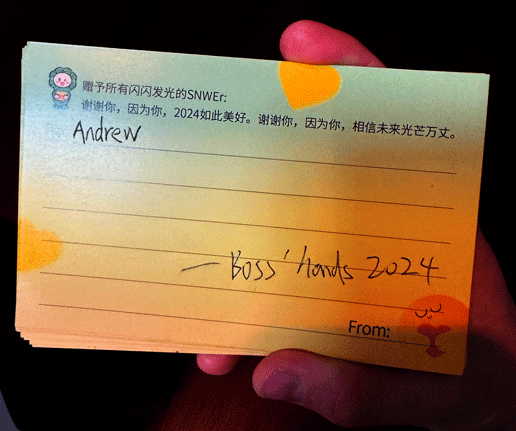 赠予所有闪闪发光的SNWEr:
谢谢你，因为你，2024如此美好。谢谢你，因为你，相信未来光芒万丈。
To: Andrew
— Boss' hands 2024
From: